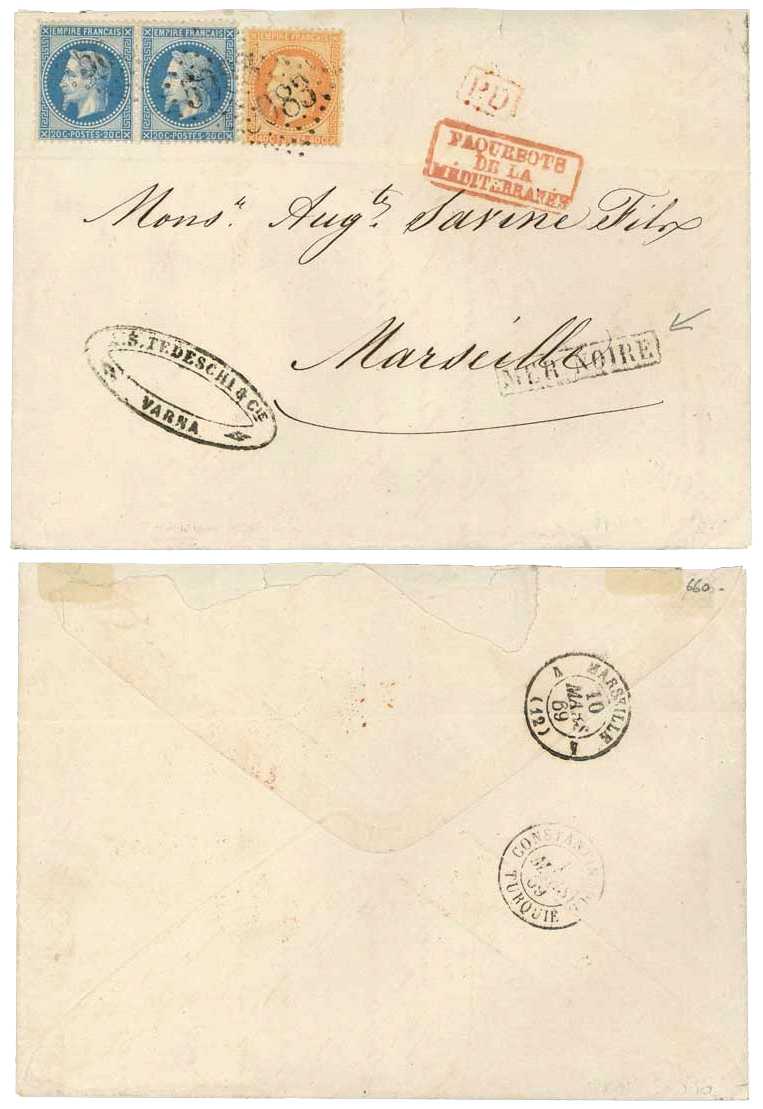 EMPIRE FRANCAIS EMPIRE FRANCAIS EMPIRE FRANCAIS
20C·POSTES·20C 20C·POSTES·20C
5083
P.D
PAQUEBOTS
DE LA
MÉDITERRANÉE
Monsr. Augte. Savine Fils
Marseille
MER NOIRE
A.S. TEDESCHI & CIE
VARNA
660.-
MARSEILLE
A
10
MARS
69
4
(12)
CONSTANTINOPLE
MARS
69
TURQUIE